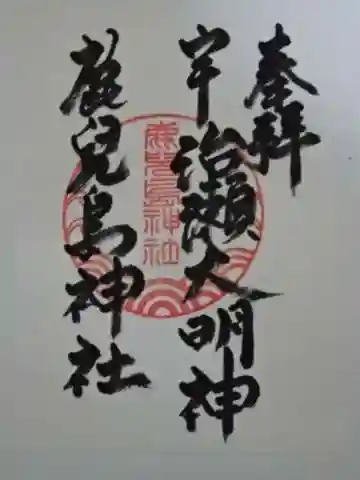 奉拝
宇治瀬大明神
鹿兒島神社
鹿兒島神社